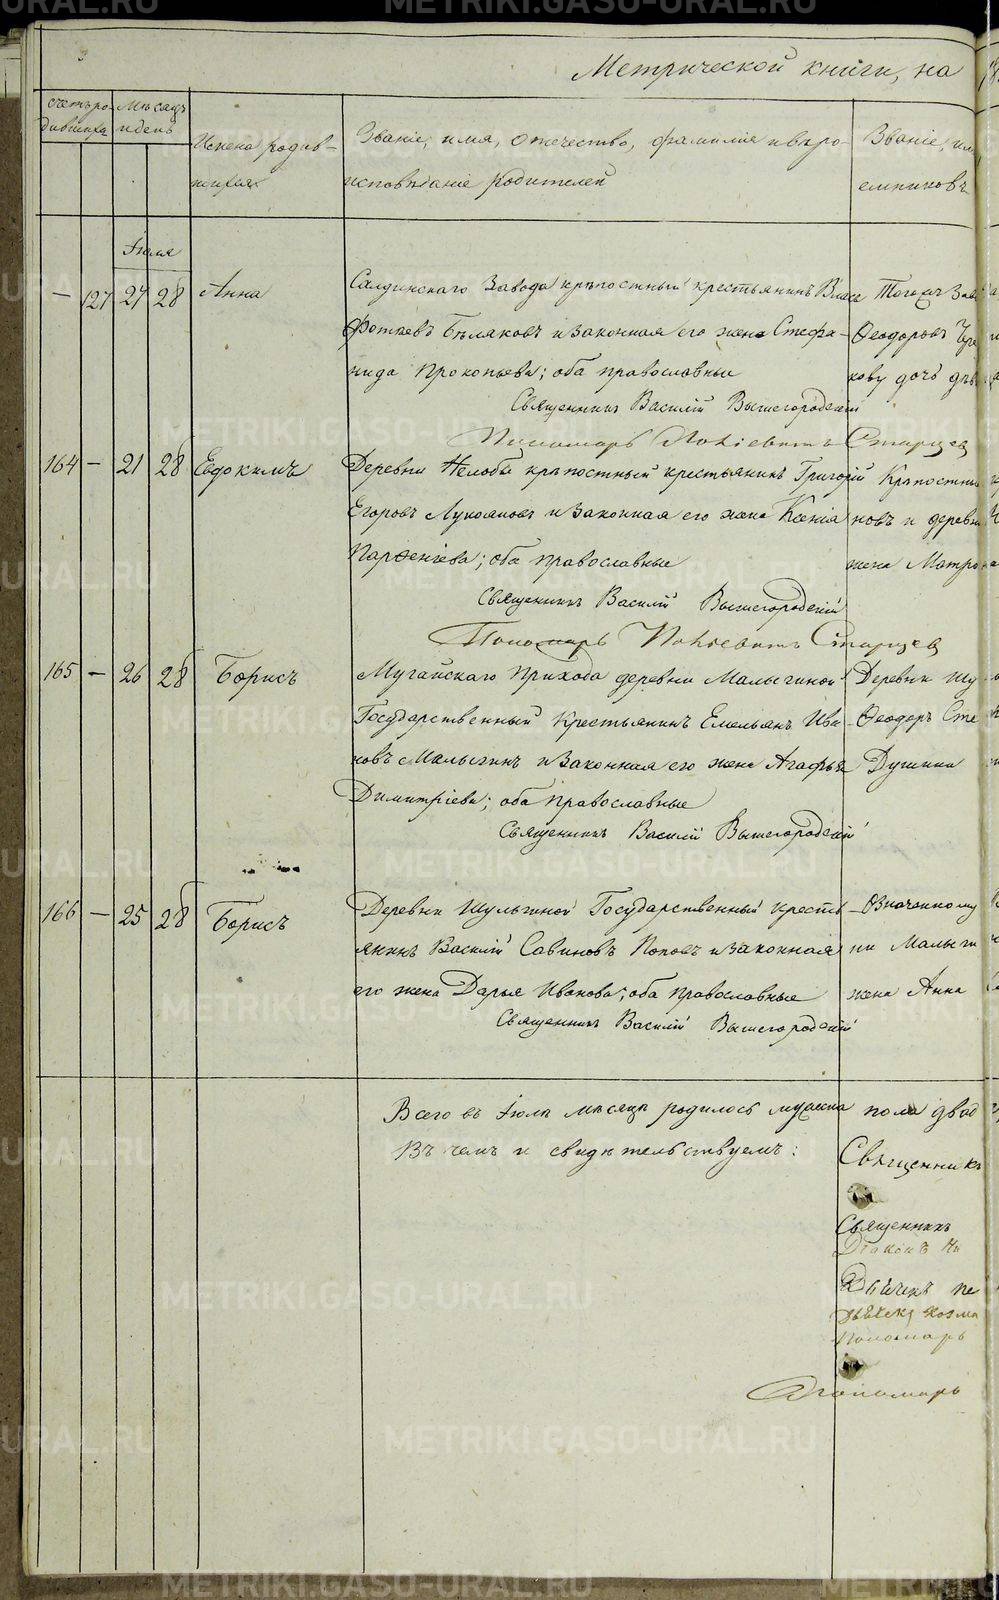 Метрической книги, на
Счетъ ро-
дившихся
Мѣсяцъ
и день
Имена родив-
шихся.
Званіе, имя, отечество, фамилія и вѣро-
исповѣданіе родителей
Званіе, им
емниковъ
Іюля
— 127 27 28 Анна
Салдинскаго Завода крѣпостный крестьянинъ Власъ
Фотіевъ Бѣляковъ и законная его жена Стефа-
нида Прокопьева; оба православные
Священникъ Василій Вышегородскій
Пономарь Старцев
Тогоже Заво
Ѳеодоровъ
кову дочь дѣв
164 — 21 28 Евдокимъ
Деревни Нелобы крѣпостный крестьянинъ Григорій
Егоровъ Лукояновъ и законная его жена Ксенія
Парѳеніева; оба православные
Священникъ Василій Вышегородскій
Пономарь Старцев
Крѣпостны
новъ и деревн
жена Матро
165 — 26 28 Борисъ
Мугайскаго Прихода деревни Малыгиной
Государственный Крестьянинъ Емельянъ Ива-
новъ Малыгинъ и законная его жена Агафья
Димитріева; оба православные
Священникъ Василій Вышегородскій
Деревни Шу
Ѳеодоръ Сте
Душина
166 — 25 28 Борисъ
Деревни Шульгиной Государственный кресть-
янинъ Василій Савиновъ Поповъ и законная
его жена Дарья Иванова; оба православные
Священникъ Василій Вышегородскій
Означенному
ни Малыги
жена Анна
Всего въ Іюлѣ мѣсяцѣ родилось мужеска пола двад
Въ чемъ и свидѣтельствуемъ:
Священникъ
Священникъ
Діаконъ
Дьячекъ
Пономарь
Пономарь
METRIKI.GASO-URAL.RU